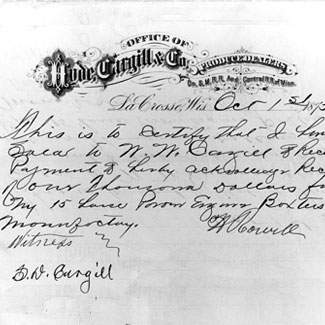 OFFICE OF
Hyde, Cargill & Co.
PRODUCE DEALERS
On S.M.R.R. And Central R.R. of Minn.
La Crosse, Wis. Oct 1st 187
This is to certify that I have
to W. W. Cargill & Rec
Payment & hereby acknowledge Rec
Four Thousand Dollars fo
My 15 Horse Power Engine
Manufactory.
Witness
S. D. Cargill